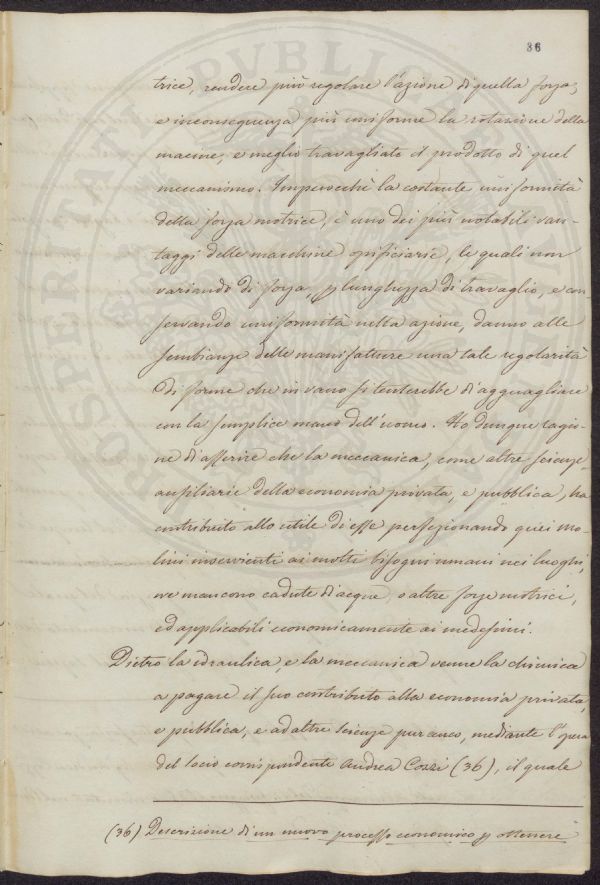 36
trice, rendere più regolare l'azione di quella forza,
e inconseguenza più uniforme la rotazione della
macine, e meglio travagliato il prodotto di quel
meccanismo. Imperocchè la costante uniformità
della forza motrice, è uno dei più notabili van-
taggi delle macchine opificiarie, le quali non
variando di forza, p lunghezza di travaglio, e con-
servando uniformità nella azione, danno alle
sembianze delle manifatture una tale regolarità
di forme che in vano si tenterebbe d'agguagliare
con la semplice mano dell'uomo. Ho dunque cagio-
ne d'asserire che la meccanica, come altre scienze
ausiliarie della economia privata, e pubblica, ha
contribuito allo utile di esse perfezionando quei mo-
lini inservienti ai molti bisogni umani nei luoghi,
ove mancono cadute d'acque, o altre forze motrici,
ed applicabili economicamente ai medesimi.
Dietro la idraulica, e la meccanica venne la chimica
a pagare il suo contributo alla economia privata,
e pubblica, e ad altre scienze pur anco, mediante l'opera
del socio corrispondente Andrea Cozzi (36), il quale
(36) Descrizione di un nuovo processo economico p ottenere
PROSPERITATI PVBLICAE